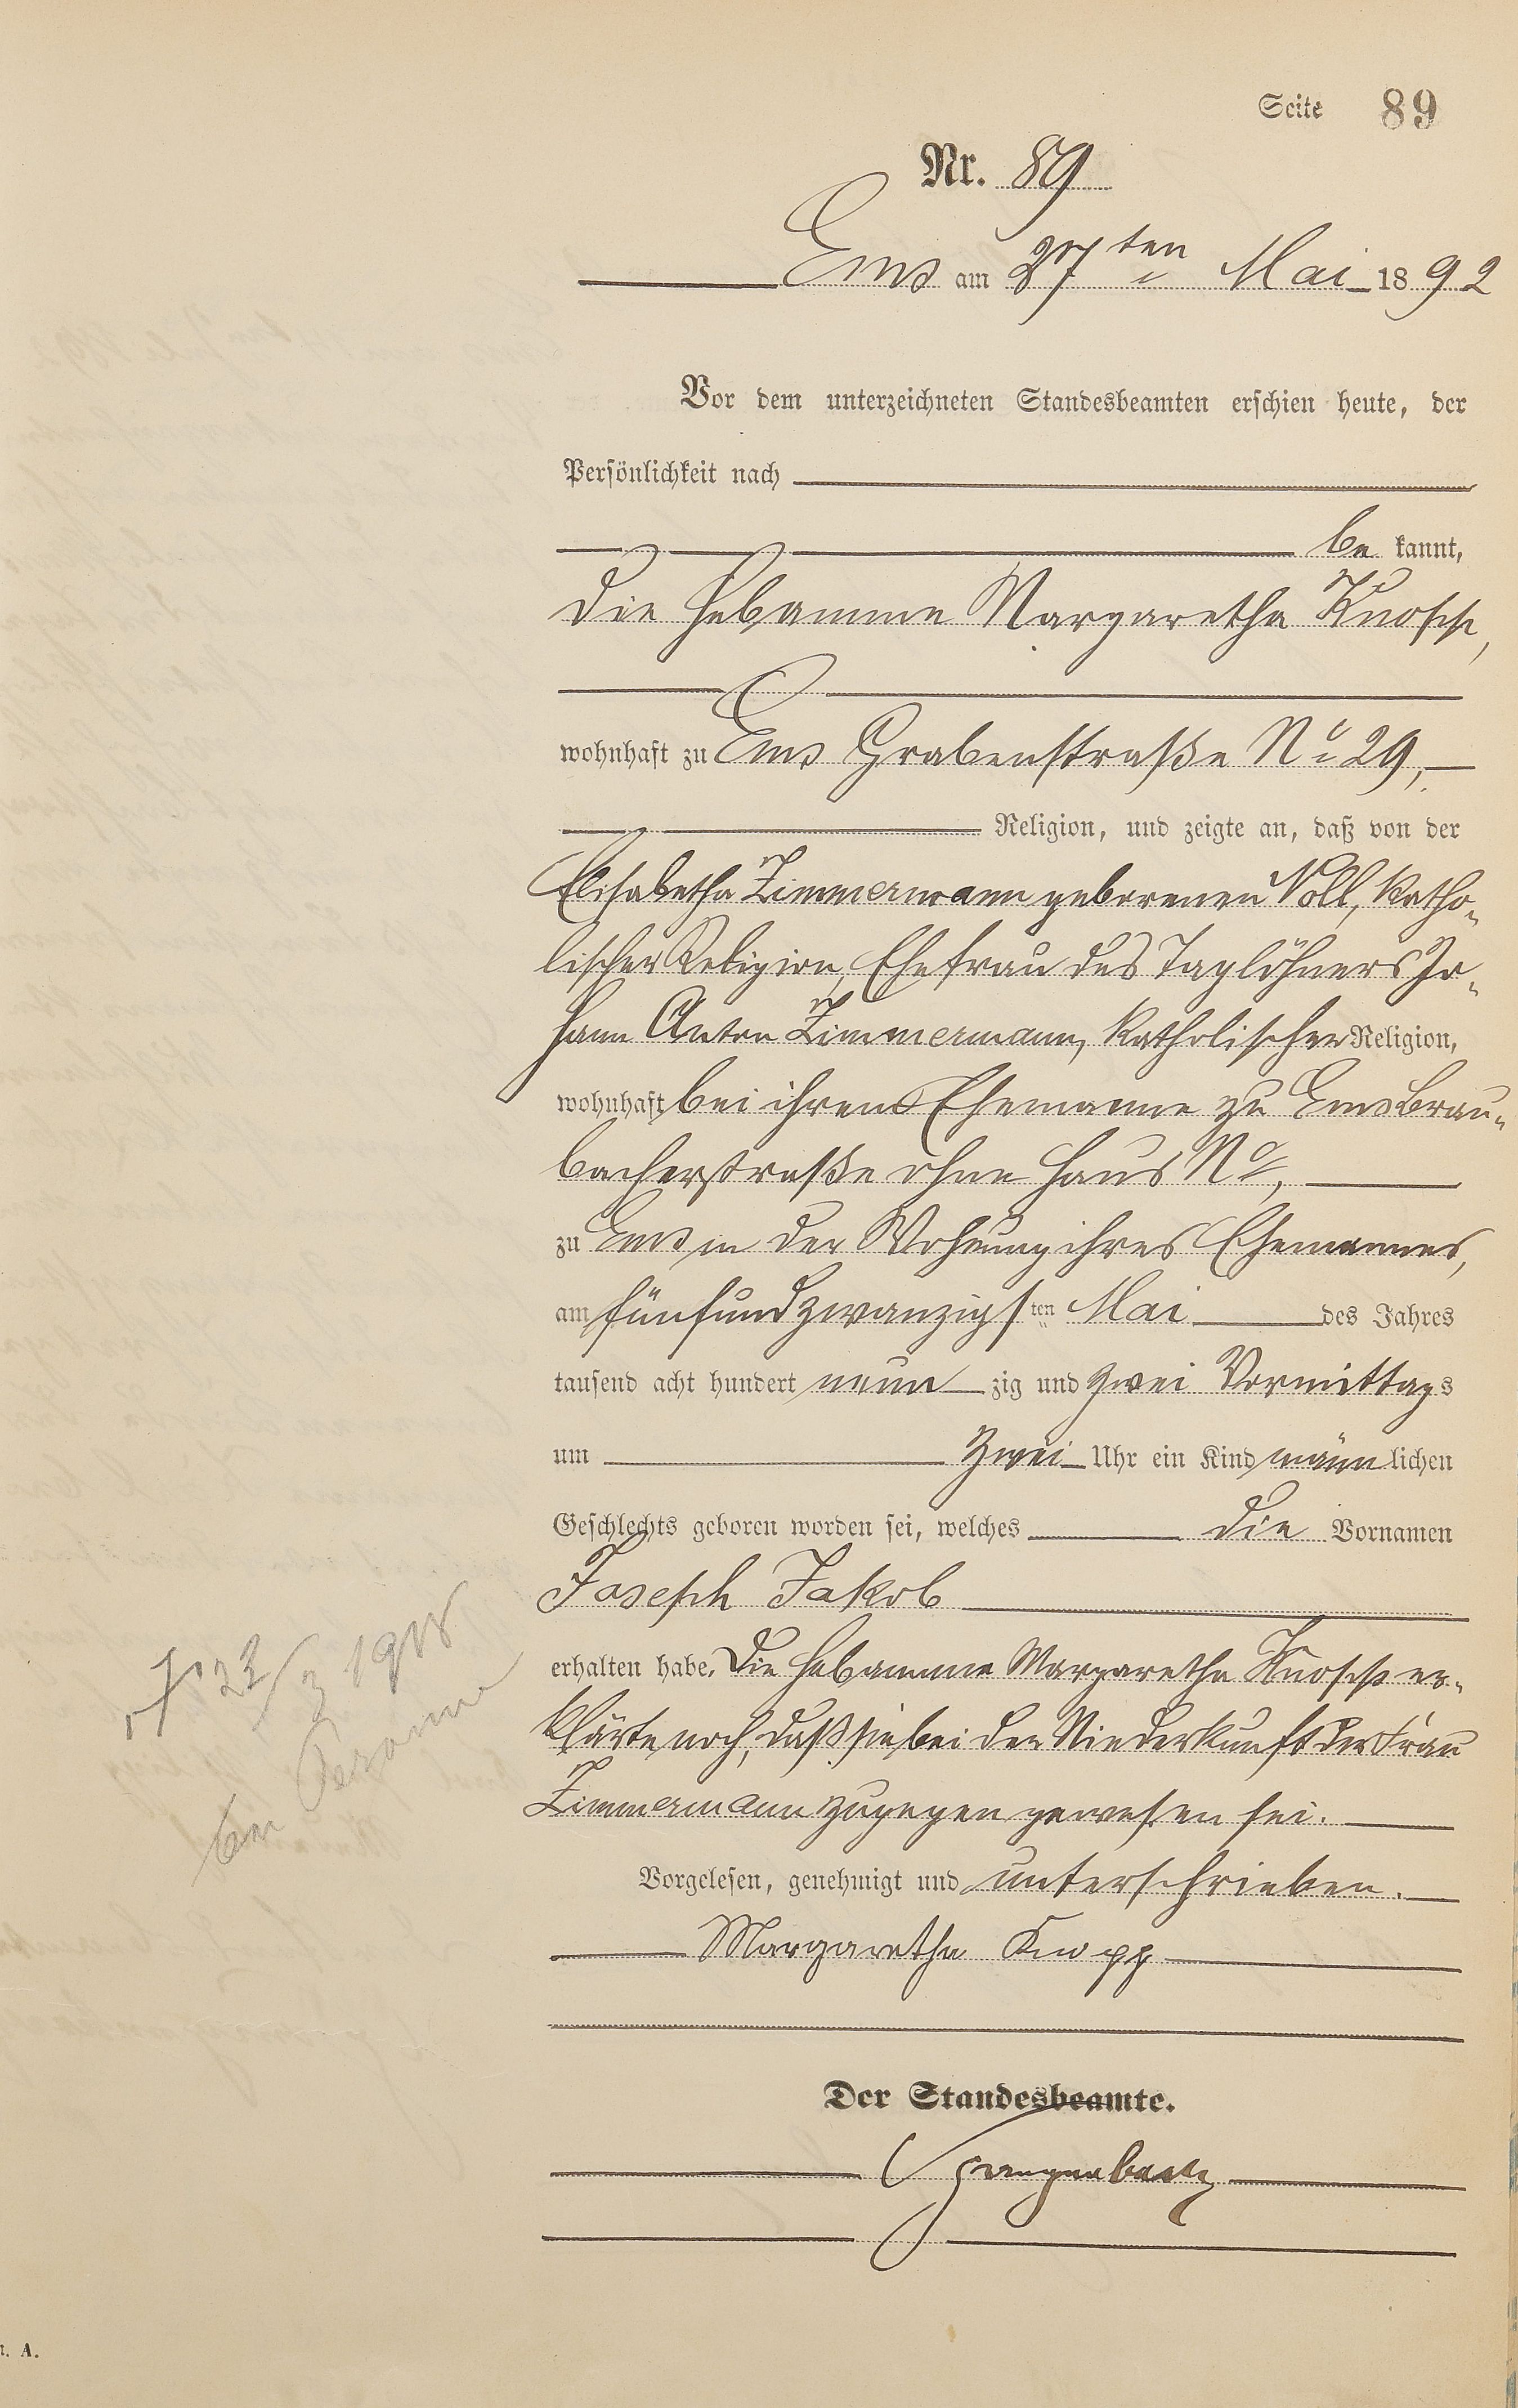 Seite 89
Nr. 89
Ems am 27ten Mai 1892
Vor dem unterzeichneten Standesbeamten erschien heute, der
Persönlichkeit nach
bekannt,
die Hebamme Margaretha Knopp,
wohnhaft zu Ems Grabenstraße No 29,
Religion, und zeigte an, daß von der
Elisabetha Zimmermann geborenen Noll, katho-
lischer Religion, Ehefrau des Taglöhners Jo-
hann Anton Zimmermann, katholischer Religion,
wohnhaft bei ihrem Ehemanne zu Ems Brau-
bacherstraße ohne Haus No,
zu Ems in der Wohnung ihres Ehemannes,
am fünfundzwanzigsten Mai des Jahres
tausend acht hundert neunzig und zwei Vormittags
um zwei Uhr ein Kind männlichen
Geschlechts geboren worden sei, welches die Vornamen
Joseph Jakob
erhalten habe. Die Hebamme Margaretha Knopp er-
klärte noch, daß sie bei der Niederkunft der Frau
Zimmermann zugegen gewesen sei.
Vorgelesen, genehmigt und unterschrieben.
Margaretha Knopp
Der Standesbeamte.
Spangenberg
† 23/3 1918
bei Peronne
A.